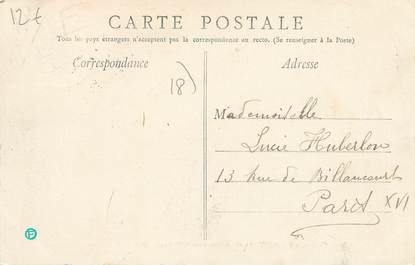 12€
CARTE POSTALE
Tous les pays étrangers n'acceptent pas la correspondance au recto. (Se renseigner à la Poste)
Correspondance
Adresse
18)
Mademoiselle
Lucie Huberlon
13 rue de Billancourt
Paris XVI